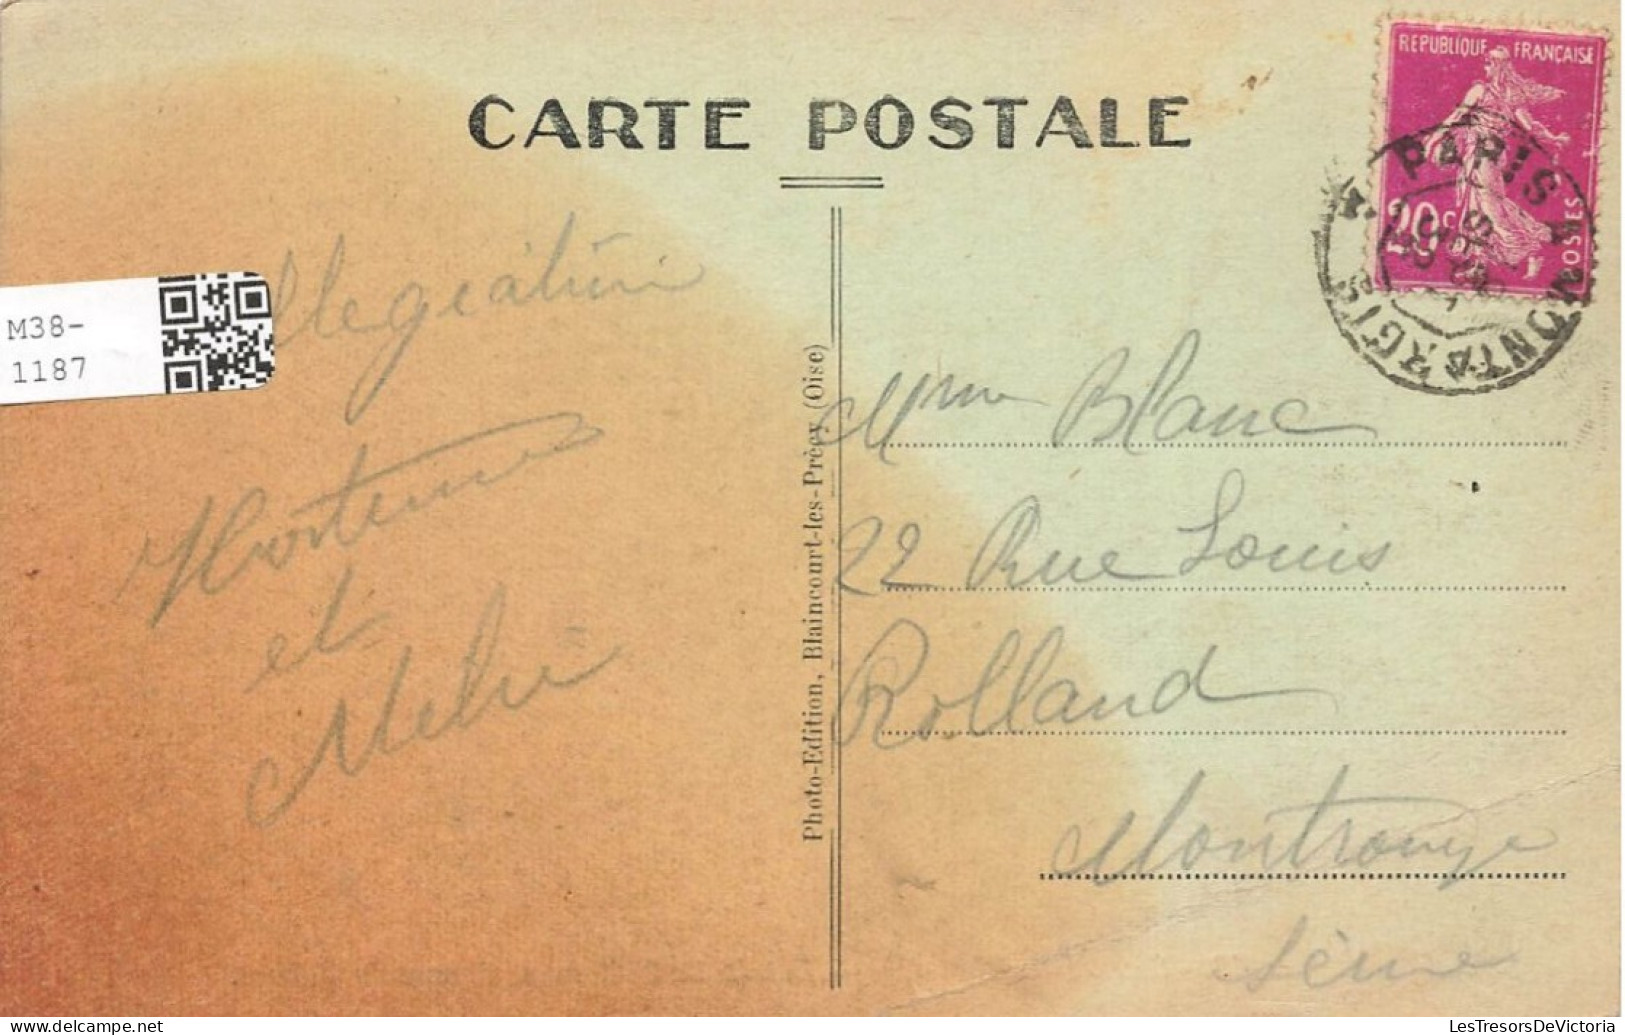 CARTE POSTALE
REPUBLIQUE FRANÇAISE
20c
POSTES
PARIS A MONTARGIS
M38-
1187
et
Photo-Edition, Blaincourt-les-Précy (Oise)
Mme Blanc
22 Rue Louis
Rolland
Montrouge
Seine
LesTresorsDeVictoria
www.delcampe.net